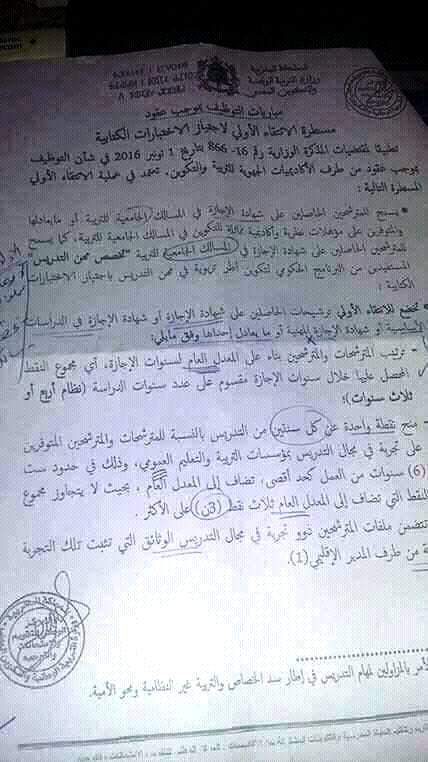 المملكة المغربية
وزارة التربية الوطنية
والتكوين المهني
مباريات التوظيف بموجب عقود
مسطرة الانتقاء الأولي لاجتياز الاختبارات الكتابية
تطبيقا لمقتضيات المذكرة الوزارية رقم 16- 866 بتاريخ 1 نونبر 2016 في شأن التوظيف
بموجب عقود من طرف الأكاديميات الجهوية للتربية والتكوين، تعتمد في عملية الانتقاء الأولي
المسطرة التالية :
• يسمح للمترشحين الحاصلين على شهادة الإجازة في المسالك الجامعية للتربية أو مايعادلها
والمتوفرين على مؤهلات وأكاديمية للتكوين في المسالك الجامعية للتربية، كما يسمح
للمترشحين الحاصلين على شهادة الإجازة في المسالك الجامعية للتربية "تخصص مهن التدريس"
المستفيدين من البرنامج الحكومي لتكوين أطر تربوية في مهن التدريس باجتياز الاختبارات
الكتابية :
تخضع للانتقاء الأولي ترشيحات الحاصلين على شهادة الإجازة أو شهادة الإجازة في الدراسات
الأساسية أو شهادة الإجازة المهنية أو ما يعادل إحداها وفق مايلي:
- ترتيب المترشحات والمترشحين بناء على المعدل العام لسنوات الإجازة، أي مجموع النقط
المحصل عليها خلال سنوات الإجازة مقسوم على عدد سنوات الدراسة (نظام أربع أو
ثلاث سنوات)؛
- منح نقطة واحدة عن كل سنتين من التدريس بالنسبة للمترشحات والمترشحين المتوفرين
على تجربة في مجال التدريس بمؤسسات التربية والتعليم العمومي، وذلك في حدود ست
(6) سنوات من العمل كحد أقصى، تضاف إلى المعدل العام، بحيث لا يتجاوز مجموع
النقط التي تضاف إلى المعدل العام ثلاث نقط (3ن) على الأكثر.
تتضمن ملفات المترشحين ذوو تجربة في مجال التدريس الوثائق التي تثبت تلك التجربة
من طرف المدير الإقليمي(1).
الأمر بالمزاولين لمهام التدريس في إطار سد الخصاص والتربية غير النظامية ومحو الأمية.